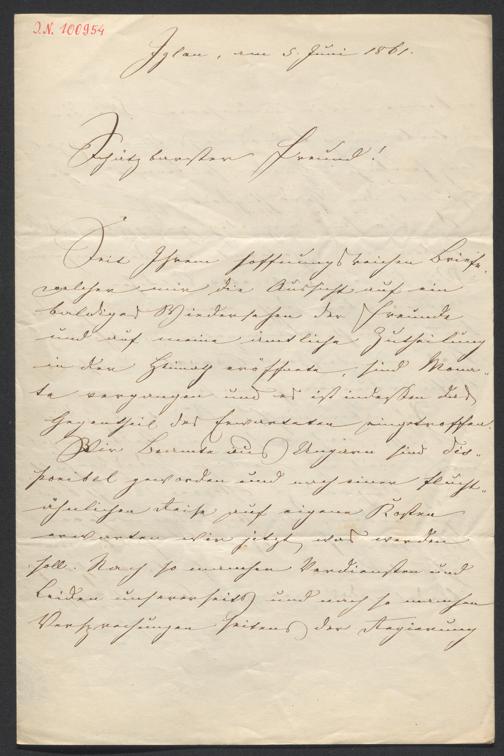 I.N. 100954
Iglau, am 5. Juni 1861.
Schätzbarster Freund!
Seit Ihrem hoffnungsreichen Briefe,
welcher mir die Aussicht auf ein
baldiges Wiedersehen der Freunde
und auf meine amtliche Zutheilung
in der Heimath eröffnete, sind Mona-
te vergangen und es ist indessen das
Gegentheil des Erwarteten eingetroffen.
Wir Beamte aus Ungarn sind dis-
ponibel geworden und nach einer flucht-
ähnlichen Reise auf eigene Kosten
erwarten wir jetzt, was werden
soll. Nach so manchen Verdiensten und
Leiden unsererseits und nach so manchen
Versprechungen seitens der Regierung